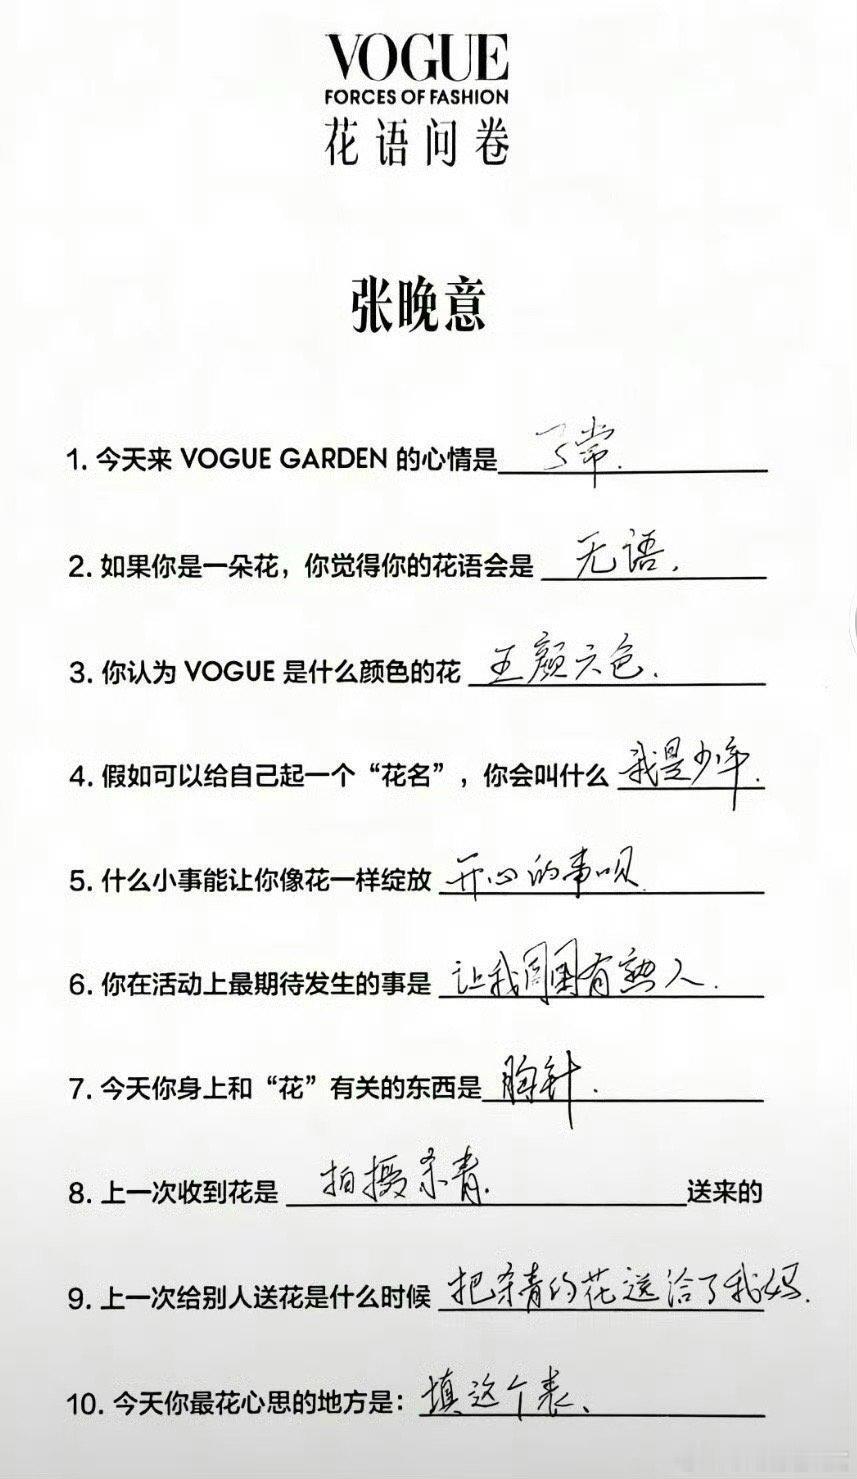 VOGUE
FORCES OF FASHION
花语问卷
张晚意
1. 今天来 VOGUE GARDEN 的心情是 常.
2. 如果你是一朵花，你觉得你的花语会是 无语.
3. 你认为 VOGUE 是什么颜色的花 五颜六色.
4. 假如可以给自己起一个“花名”，你会叫什么 我是少年.
5. 什么小事能让你像花一样绽放 开心的事呗.
6. 你在活动上最期待发生的事是 让我周围有熟人.
7. 今天你身上和“花”有关的东西是 胸针.
8. 上一次收到花是 拍摄杀青. 送来的
9. 上一次给别人送花是什么时候 把杀青的花送给了我妈.
10. 今天你最花心思的地方是： 填这个表.